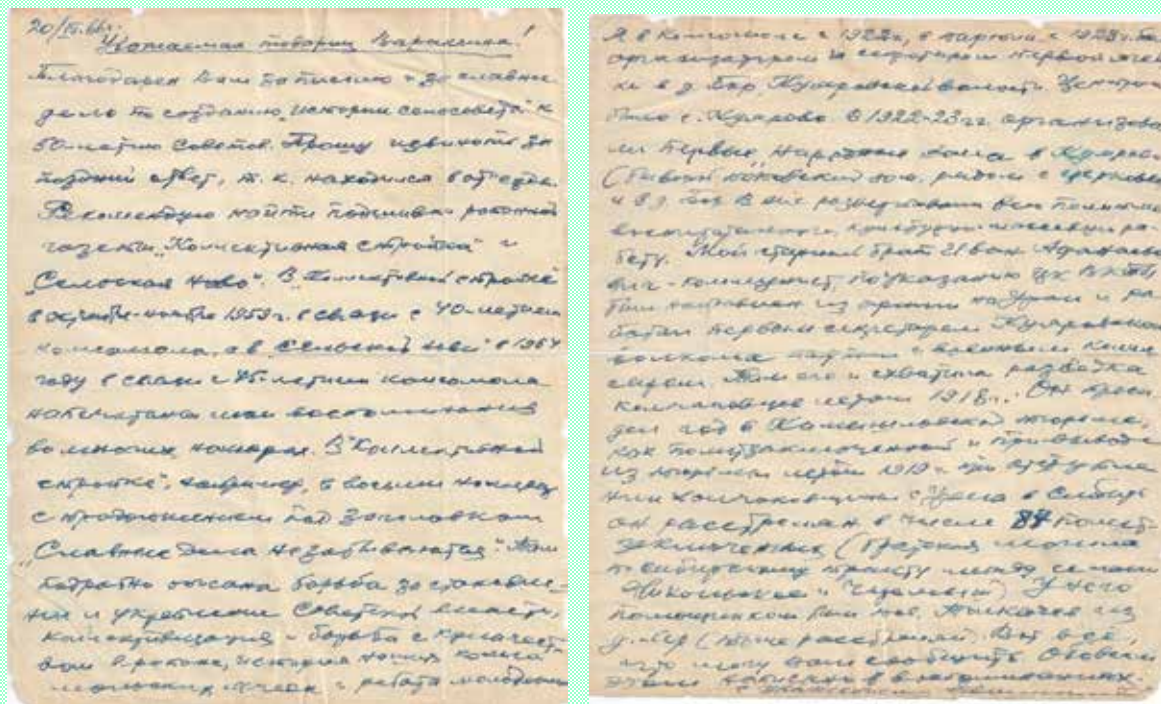 20/IV.66г.
Уважаемая товарищ !
Благодарен Вам за письмо и за славное
дело по созданию „истории сельсовета“ к
50-летию Советов. Прошу извинить за
поздний ответ, т. к. находился в отъезде.
Рекомендую найти подшивки районной
газеты „Колективная стройка“ и
„Сельская новь“. В „Колективной стройке“
в октябре-ноябре 1959 г. в связи с 40-летием
комсомола, а в „Сельской нови“ в 1964
году в связи с 45-летием комсомола
напечатаны мои воспоминания
во многих номерах. В „Колективной
стройке“, например, в восьми номерах
с продолжением под заголовком
„Славные дела не забываются“. Там
подробно описана борьба за становле-
ние и укрепление Советской власти,
колективизация и борьба с кулачест-
вом в районе, история наших комсо-
мольских ячеек и работа молодежи
Я в Комсомоле с 1922 г., в партии с 1928 г. Был
организатором и секретарем первой ячей-
ки в д. Бор, волости. Центром
было с. В 1922-23 гг. организова-
ли первые „Народные дома“ в
(бывший поповский дом, рядом с церковью
и в д. Бор. В них развертывали всю политико-
воспитательную, культурно-массовую ра-
боту. Мой старший брат Иван
вич - коммунист, по указанию ЦК
был направлен из армии на Урал и ра-
ботал первым секретарем
волкома партии и военным комис-
саром. Там его и схватила разведка
колчаковцев летом 1918 г. Он проси-
дел год в Камышловской тюрьме,
как политзаключенный и при выводе
из тюрьмы летом 1919 г. при отступле-
нии колчаковщины с Урала в Сибирь
он расстрелян в числе 84 полит-
заключенных (братская могила
по сибирскому тракту между селами
Никольское и ) У него
помощником был тов. из
д. Бор (тоже расстрелян). Вот всё,
что могу вам сообщить. Обо всем
этом написано в воспоминаниях.